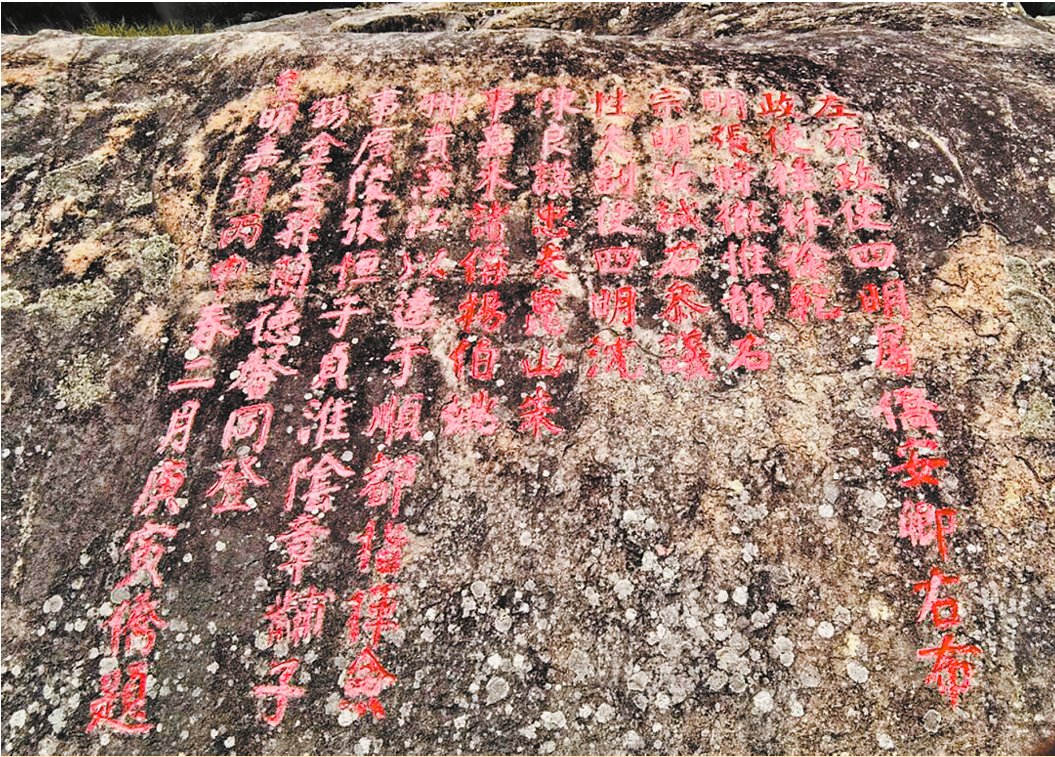 左布政使四明屠僑安卿右布
政使桂林徐乾
明張時徹惟靜石
宗明汝誠右參議
性夫副使四明沈
陳良謨忠夫崑山朱
事嘉禾諸偁揚伯
卿貴溪江以達于順都指揮僉
事廣陵張恒子貞淮陰章黼子
錫金臺蔣蘭德馨同登
皇明嘉靖丙申春二月庚寅僑題